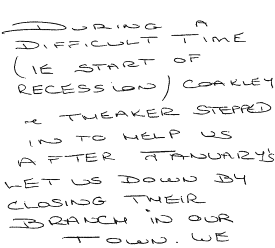 DURING A
DIFFICULT TIME
(IE START OF
RECESSION) COAKLEY
& THEAKER STEPPED
IN TO HELP US
AFTER JANUARY'S
LET US DOWN BY
CLOSING THEIR
BRANCH IN OUR
TOWN. WE